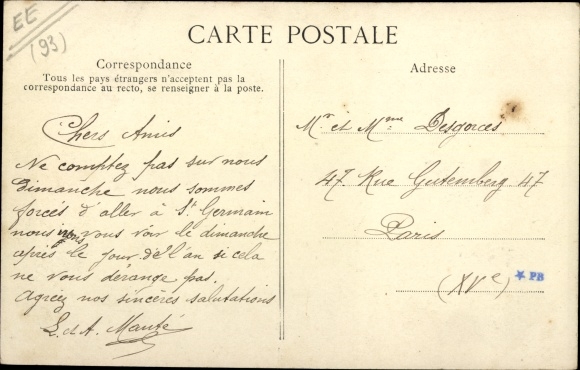 EE
(93)
CARTE POSTALE
Correspondance
Tous les pays étrangers n'acceptent pas la
correspondance au recto, se renseigner à la poste.
Chers Amis
Ne comptez pas sur nous
Dimanche nous sommes
forcés d'aller à St Germain
nous irons vous voir le dimanche
après le jour de l'an si cela
ne vous dérange pas.
Agréez nos sincères salutations
L. et A. Mauté
Adresse
Mr et Mme Desgorces
47 Rue Gutemberg 47
Paris
(XVe)
PB